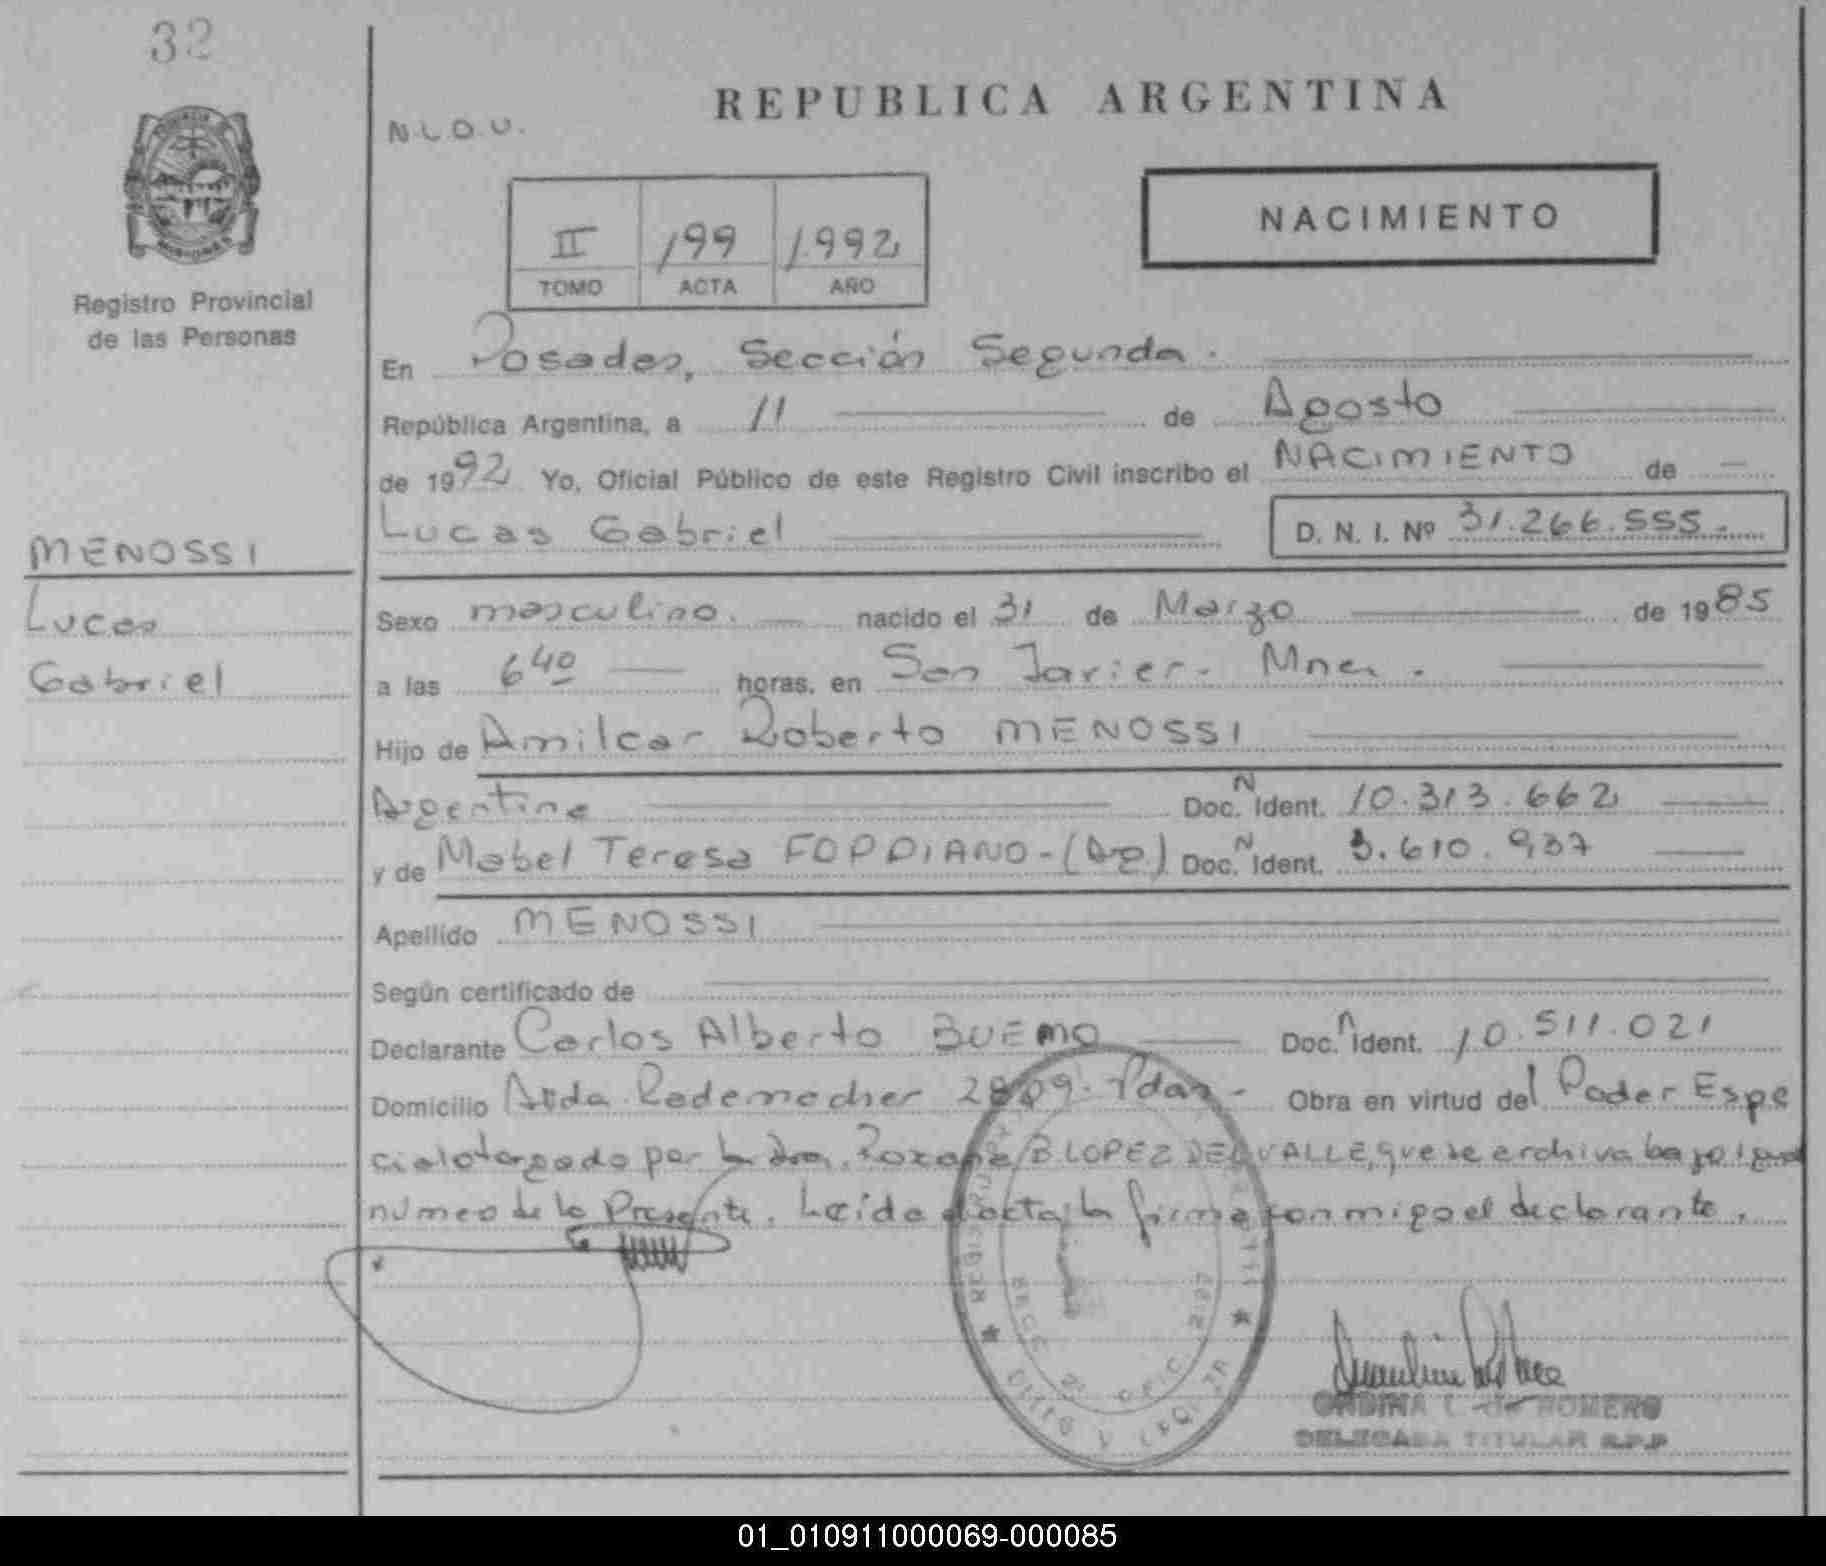 32
REPUBLICA ARGENTINA
N.L.O.U.
NACIMIENTO
II 199 1.992
TOMO ACTA AÑO
MISIONES
Registro Provincial
de las Personas
En Posadas, Sección Segunda.
República Argentina, a 11 de Agosto
de 1992 Yo, Oficial Público de este Registro Civil inscribo el NACIMIENTO de —
Lucas Gabriel D. N. I. Nº 31.266.555.-
MENOSSI
Lucas
Gabriel
Sexo masculino. nacido el 31 de Marzo de 1985
a las 6 40 horas, en San Javier - Mnes.
Hijo de Amilcar Roberto MENOSSI
Argentino Doc. N Ident. 10.313.662
y de Mabel Teresa FOPPIANO - (Ag) Doc. N Ident. 3.610.937
Apellido MENOSSI
Según certificado de
Declarante Carlos Alberto BUEMO Doc. n Ident. 10.511.021
Domicilio Avda. Rademacher 2809. Pdas - Obra en virtud del Poder Espe
cial otorgado por la Dra. Roxana B. LOPEZ DEL VALLE, que se archiva bajo igual
número de la Presente. Leída el acta, la firma conmigo el declarante.
ONDINA C. de ROMERO
DELEGADA TITULAR R.P.P
01_010911000069-000085